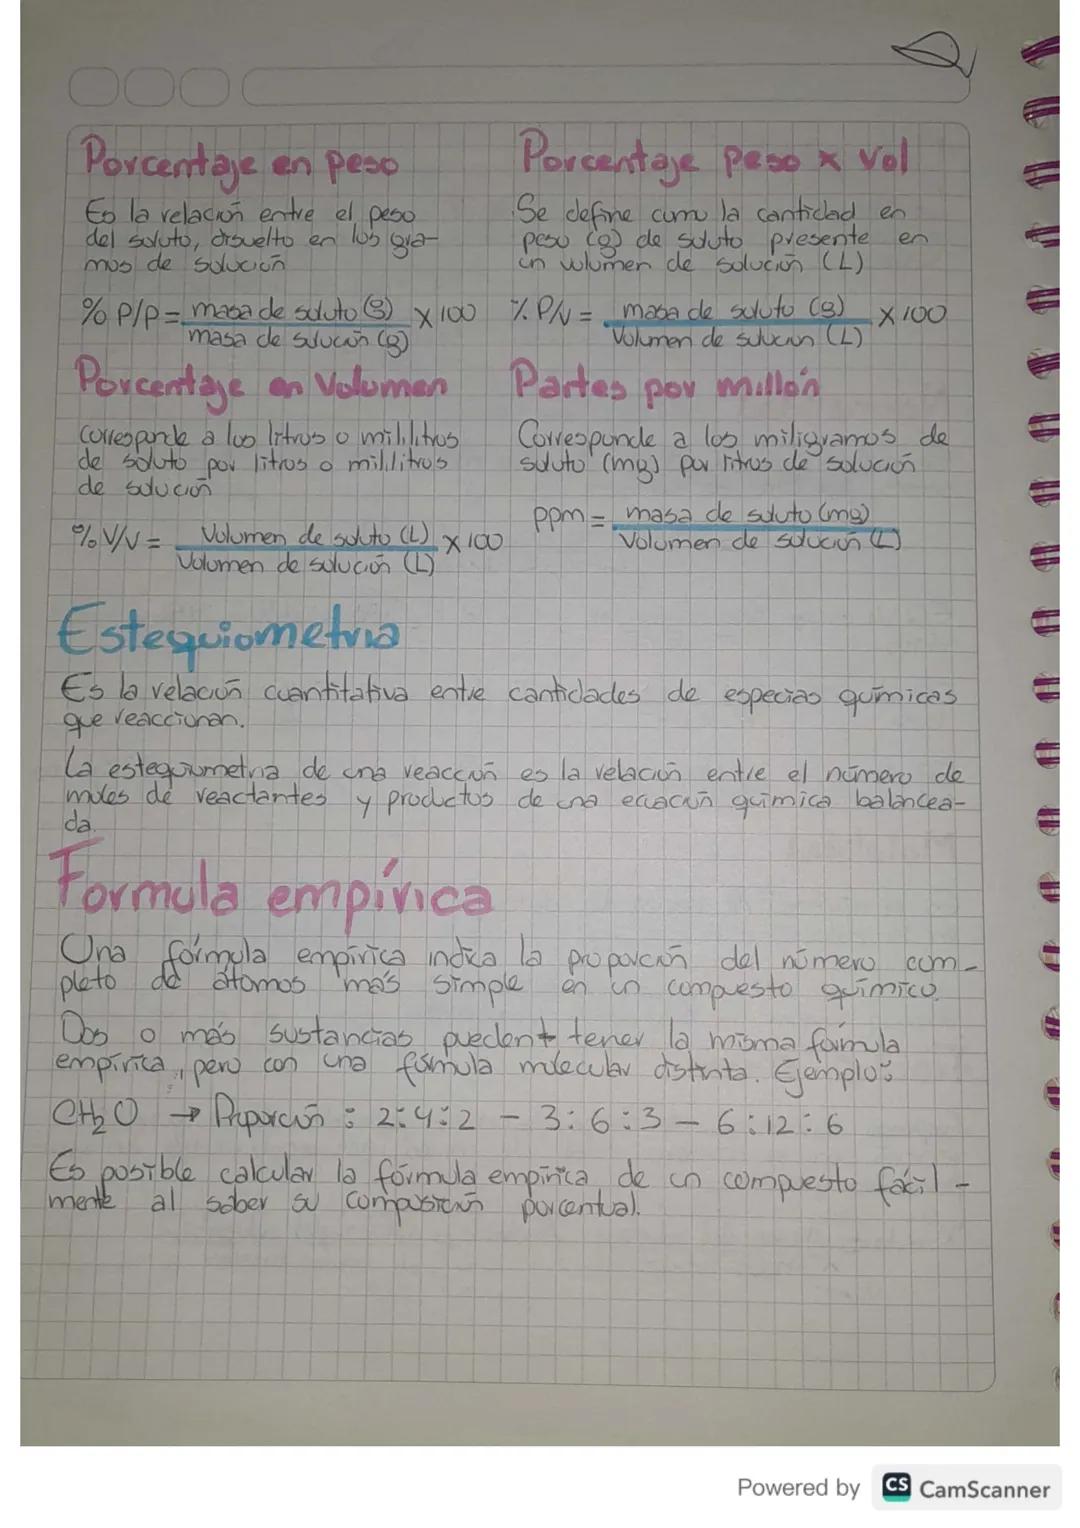 Porcentaje en peso
Es la relación entre el peso
del soluto, disuelto en los gra-
mos de solución
% P/P = masa de soluto (g) x 100
masa de solución (g)
Porcentaje peso x Vol
Se define como la cantidad en
peso (g) de soluto presente en
un volumen de solución (L)
% P/V = masa de soluto (g) x 100
Volumen de solución (L)
Porcentaje en Volumen
Corresponde a los litros o mililitros
de soluto por litros o mililitros
de solución
% V/V = Volumen de soluto (L) x 100
Volumen de solución (L)
Partes por millón
Corresponde a los miligramos de
soluto (mg) por litros de solución
ppm = masa de soluto (mg)
Volumen de solución (L)
Estequiometria
Es la relación cuantitativa entre cantidades de especias químicas
que reaccionan.
La estequiometria de una reacción es la relación entre el número de
moles de reactantes y productos de una ecuación química balancea-
da.
Formula empírica
Una fórmula empírica indica la proporción del número com-
pleto de átomos más simple en un compuesto químico.
Dos o más sustancias pueden tener la misma fórmula
empírica, pero con una fórmula molecular distinta. Ejemplo:
CH₂O → Proporción : 2:4:2 - 3:6:3 - 6:12:6
Es posible calcular la fórmula empírica de un compuesto fácil-
mente al saber su composición porcentual.
Powered by CS CamScanner